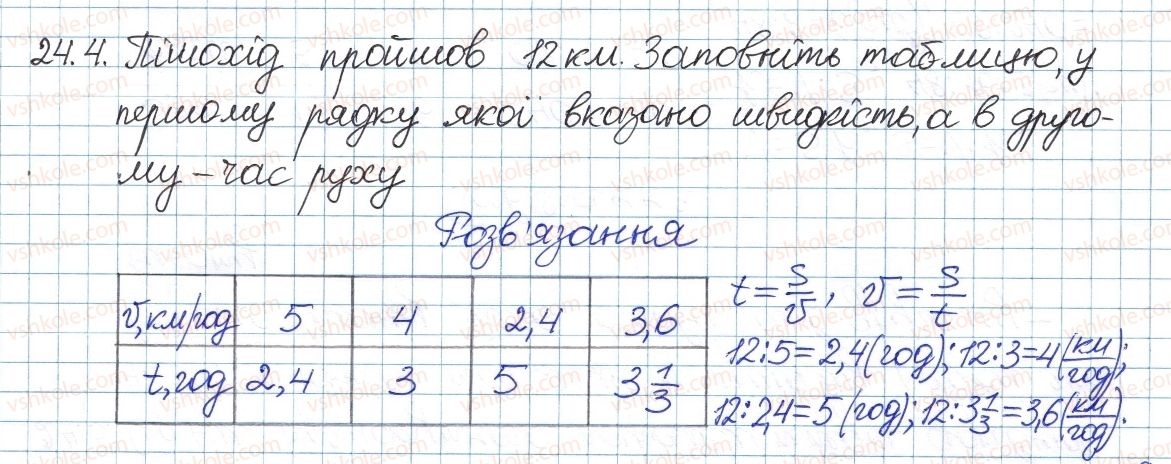 24.4. Пішохід пройшов 12 км. Заповніть таблицю, у
першому рядку якої вказано швидкість, а в друго-
му – час руху
Розв'язання
v, км/год 5 4 2,4 3,6
t, год 2,4 3 5 3 1/3
t = S/v, v = S/t
12:5=2,4(год); 12:3=4(км/год);
12:2,4=5(год); 12:3 1/3=3,6(км/год).